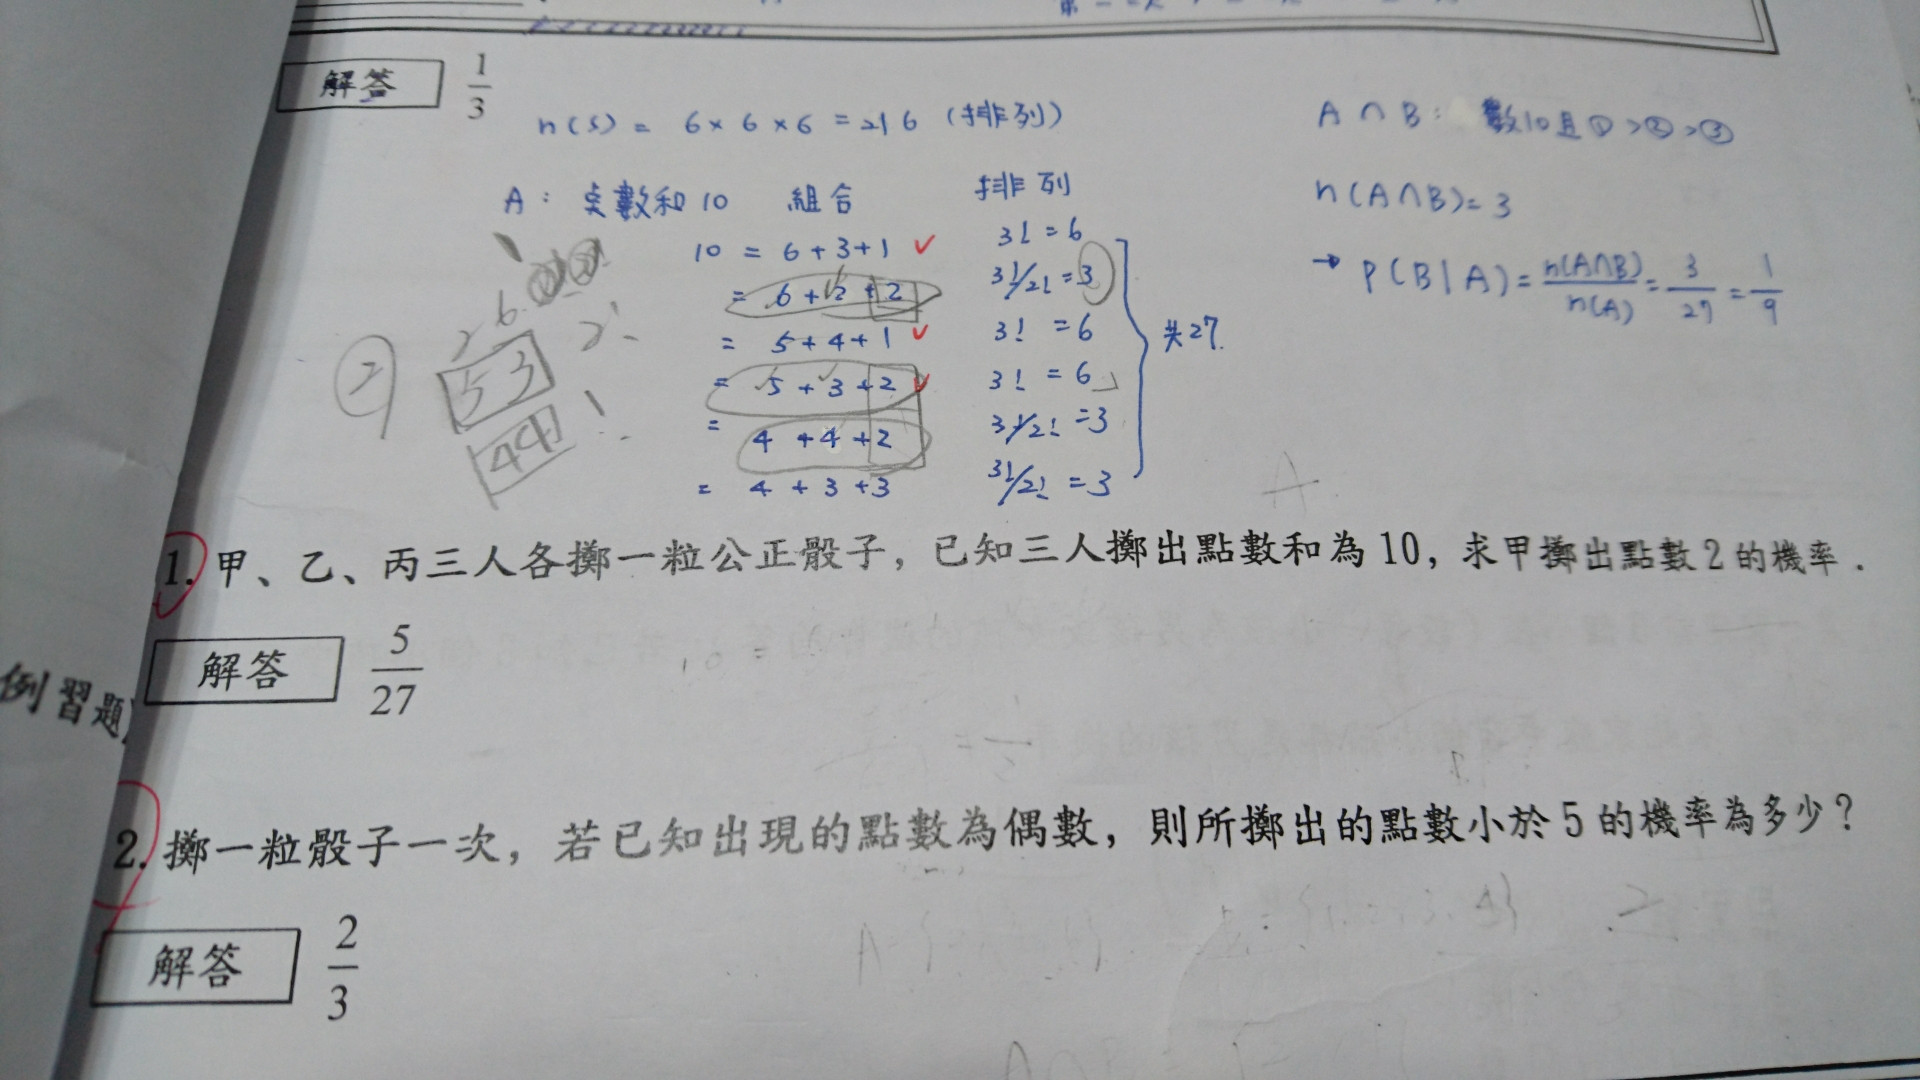 解答 1/3
n(S) = 6×6×6 = 216 (排列)
A∩B: 數10且①>②>③
A: 点數和10 組合 排列
n(A∩B)=3
10 = 6+3+1 ✓ 3! = 6
= 6+2+2 3!/2! = 3
→ P(B|A) = n(A∩B)/n(A) = 3/27 = 1/9
= 5+4+1 ✓ 3! = 6
共27.
= 5+3+2 ✓ 3! = 6
= 4+4+2 3!/2! = 3
= 4+3+3 3!/2! = 3
2
53
44
1. 甲、乙、丙三人各擲一粒公正骰子，已知三人擲出點數和為10，求甲擲出點數2的機率．
解答 5/27
例習題
2. 擲一粒骰子一次，若已知出現的點數為偶數，則所擲出的點數小於5的機率為多少？
解答 2/3